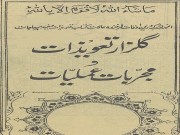 ماشاء اللہ لا قوۃ الا باللہ
گلزار تعویذات
و
مجربات عملیات